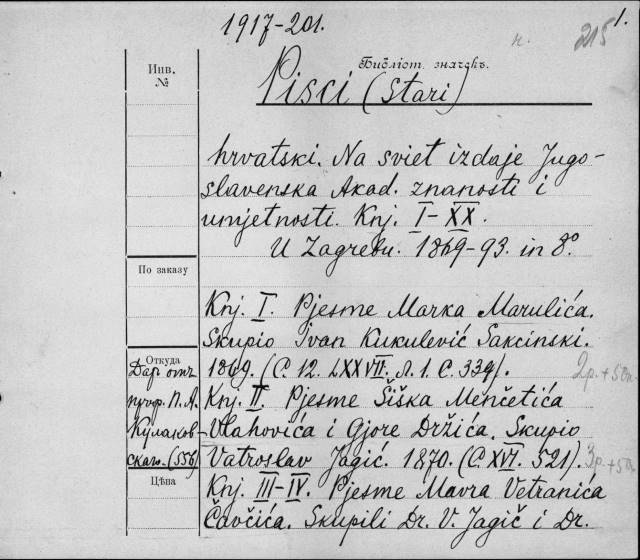 1917-201.
н. 215 1.
Инв. №
Библіот. значекъ.
Pisci (Stari)
hrvatski. Na sviet izdaje Jugo-
slavenska Akad. znanosti i
umjetnosti. Knj. I-XX.
U Zagrebu. 1869-93. in 8°
По заказу
Knj. I. Pjesme Marka Marulića.
Skupio Ivan Kukulević Sakcinski.
1869. (С. 12. LXXVII. Л. 1. С. 339).
Откуда
Даръ отъ
проф. П. А.
Кулаков-
скаго. (556)
2р. + 50к
Knj. II. Pjesme Šiška Menčetića
Vlahovića i Gjore Držića. Skupio
Vatroslav Jagić. 1870. (С. XVI. 521).
3р. + 50
Цѣна
Knj. III-IV. Pjesme Mavra Vetranića
Čavčića. Skupili Dr. V. Jagič i Dr.